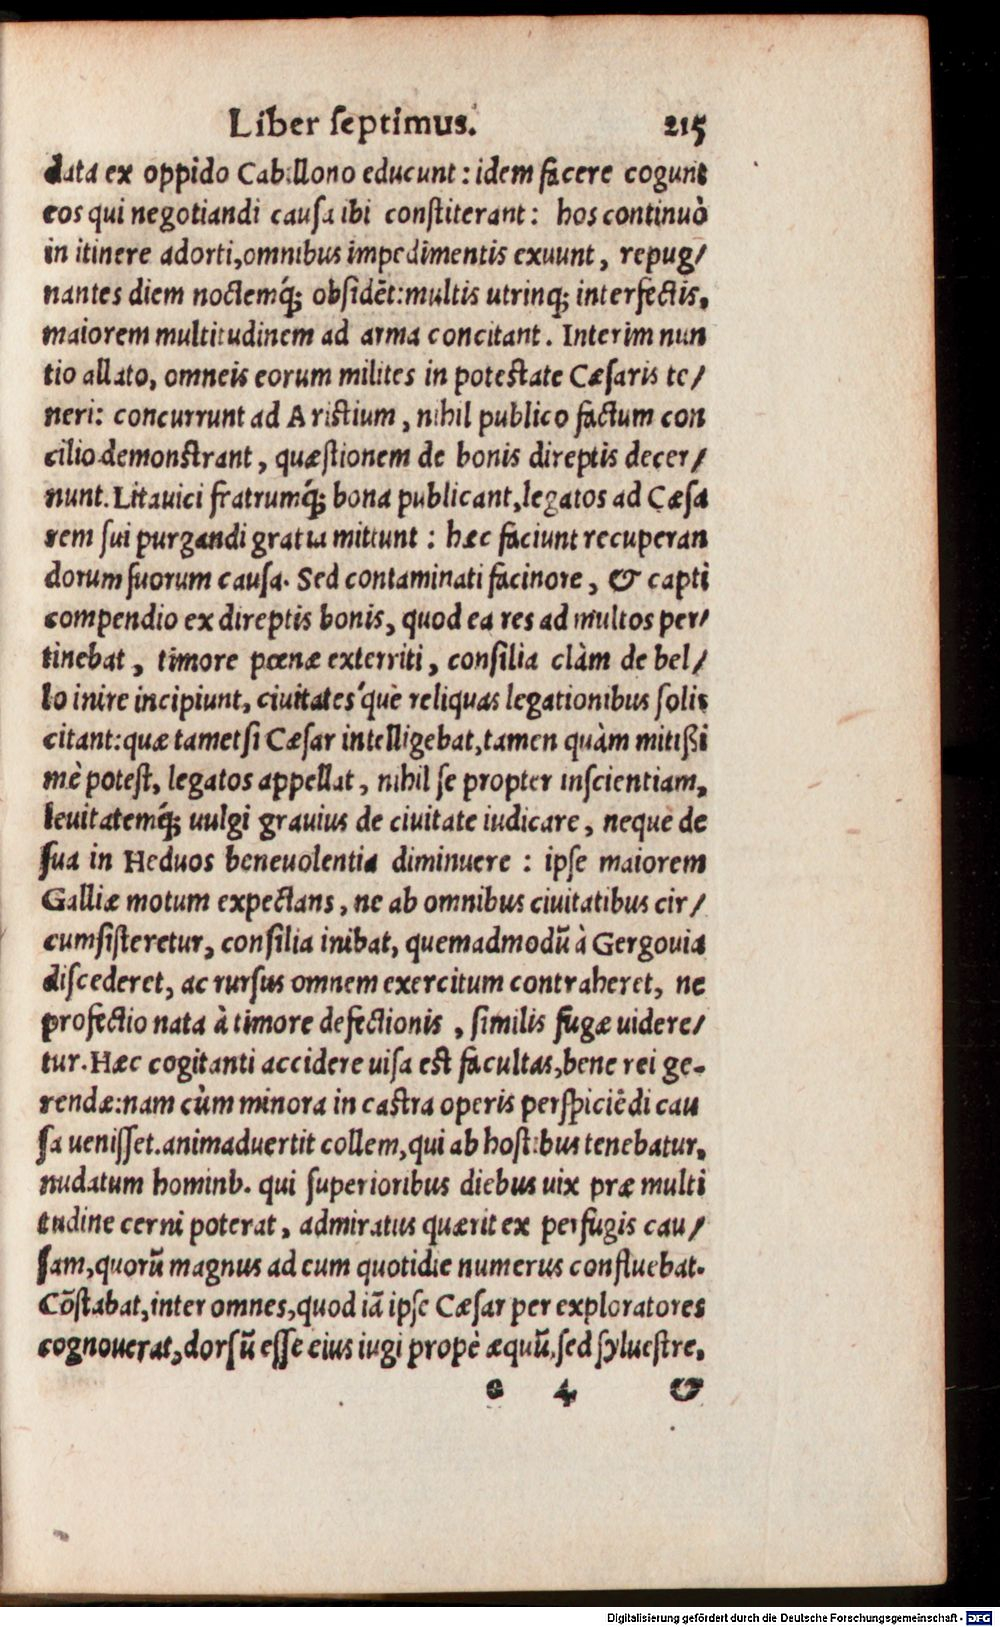 Liber ſeptimus. 215
data ex oppido Cabillono educunt: idem facere cogunt
eos qui negotiandi cauſa ibi conſtiterant: hos continuò
in itinere adorti, omnibus impedimentis exuunt, repug/
nantes diem noctemq́; obſidēt: multis utrinq; interfectis,
maiorem multitudinem ad arma concitant. Interim nun
tio allato, omneis eorum milites in poteſtate Cæſaris te/
neri: concurrunt ad Ariſtium, nihil publico factum con
cilio demonſtrant, quæſtionem de bonis direptis decer/
nunt. Litauici fratrumq́; bona publicant, legatos ad Cæſa
rem ſui purgandi gratia mittunt: hæc faciunt recuperan
dorum ſuorum cauſa. Sed contaminati facinore, & capti
compendio ex direptis bonis, quod ea res ad multos per/
tinebat, timore pœnæ exterriti, conſilia clàm de bel/
lo inire incipiunt, ciuitates'què reliquas legationibus ſoli
citant: quæ tametſi Cæſar intelligebat, tamen quàm mitißi
mè poteſt, legatos appellat, nihil ſe propter inſcientiam,
leuitatemq́; uulgi grauius de ciuitate iudicare, nequè de
ſua in Heduos beneuolentia diminuere: ipſe maiorem
Galliæ motum expectans, ne ab omnibus ciuitatibus cir/
cumſiſteretur, conſilia inibat, quemadmodū à Gergouia
diſcederet, ac rurſus omnem exercitum contraheret, ne
profectio nata à timore defectionis, ſimilis fugæ uidere/
tur. Hæc cogitanti accidere uiſa eſt facultas, bene rei ge-
rendæ: nam cùm minora in caſtra operis perſpiciēdi cau
ſa ueniſſet. animaduertit collem, qui ab hoſtibus tenebatur,
nudatum hominb. qui ſuperioribus diebus uix præ multi
tudine cerni poterat, admiratus quærit ex perfugis cau/
ſam, quorū magnus ad eum quotidie numerus confluebat.
Cōſtabat, inter omnes, quod iā ipſe Cæſar per exploratores
cognouerat, dorſū eſſe eius iugi propè æquū, ſed ſylueſtre,
e 4 &
Digitalisierung gefördert durch die Deutsche Forschungsgemeinschaft - DFG